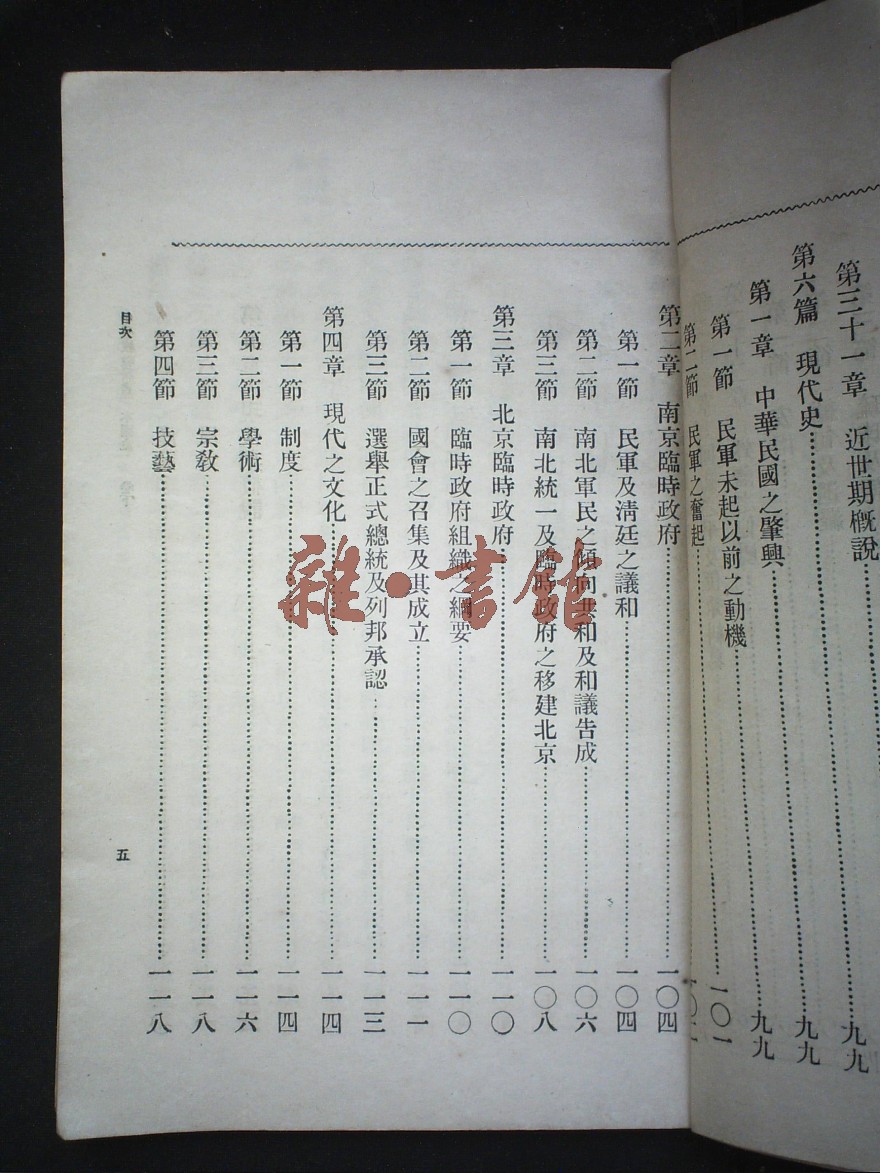 第三十一章　近世期概說……九九
第六篇　現代史……九九
第一章　中華民國之肇興……九九
第一節　民軍未起以前之動機……一〇一
第二節　民軍之奮起……一〇二
第二章　南京臨時政府……一〇四
第一節　民軍及淸廷之議和……一〇四
第二節　南北軍民之傾向共和及和議告成……一〇六
第三節　南北統一及臨時政府之移建北京……一〇八
第三章　北京臨時政府……一一〇
第一節　臨時政府組織之綱要……一一〇
第二節　國會之召集及其成立……一一一
第三節　選舉正式總統及列邦承認……一一三
第四章　現代之文化……一一四
第一節　制度……一一四
第二節　學術……一一六
第三節　宗敎……一一八
第四節　技藝……一一八
目次
五
雜·書館